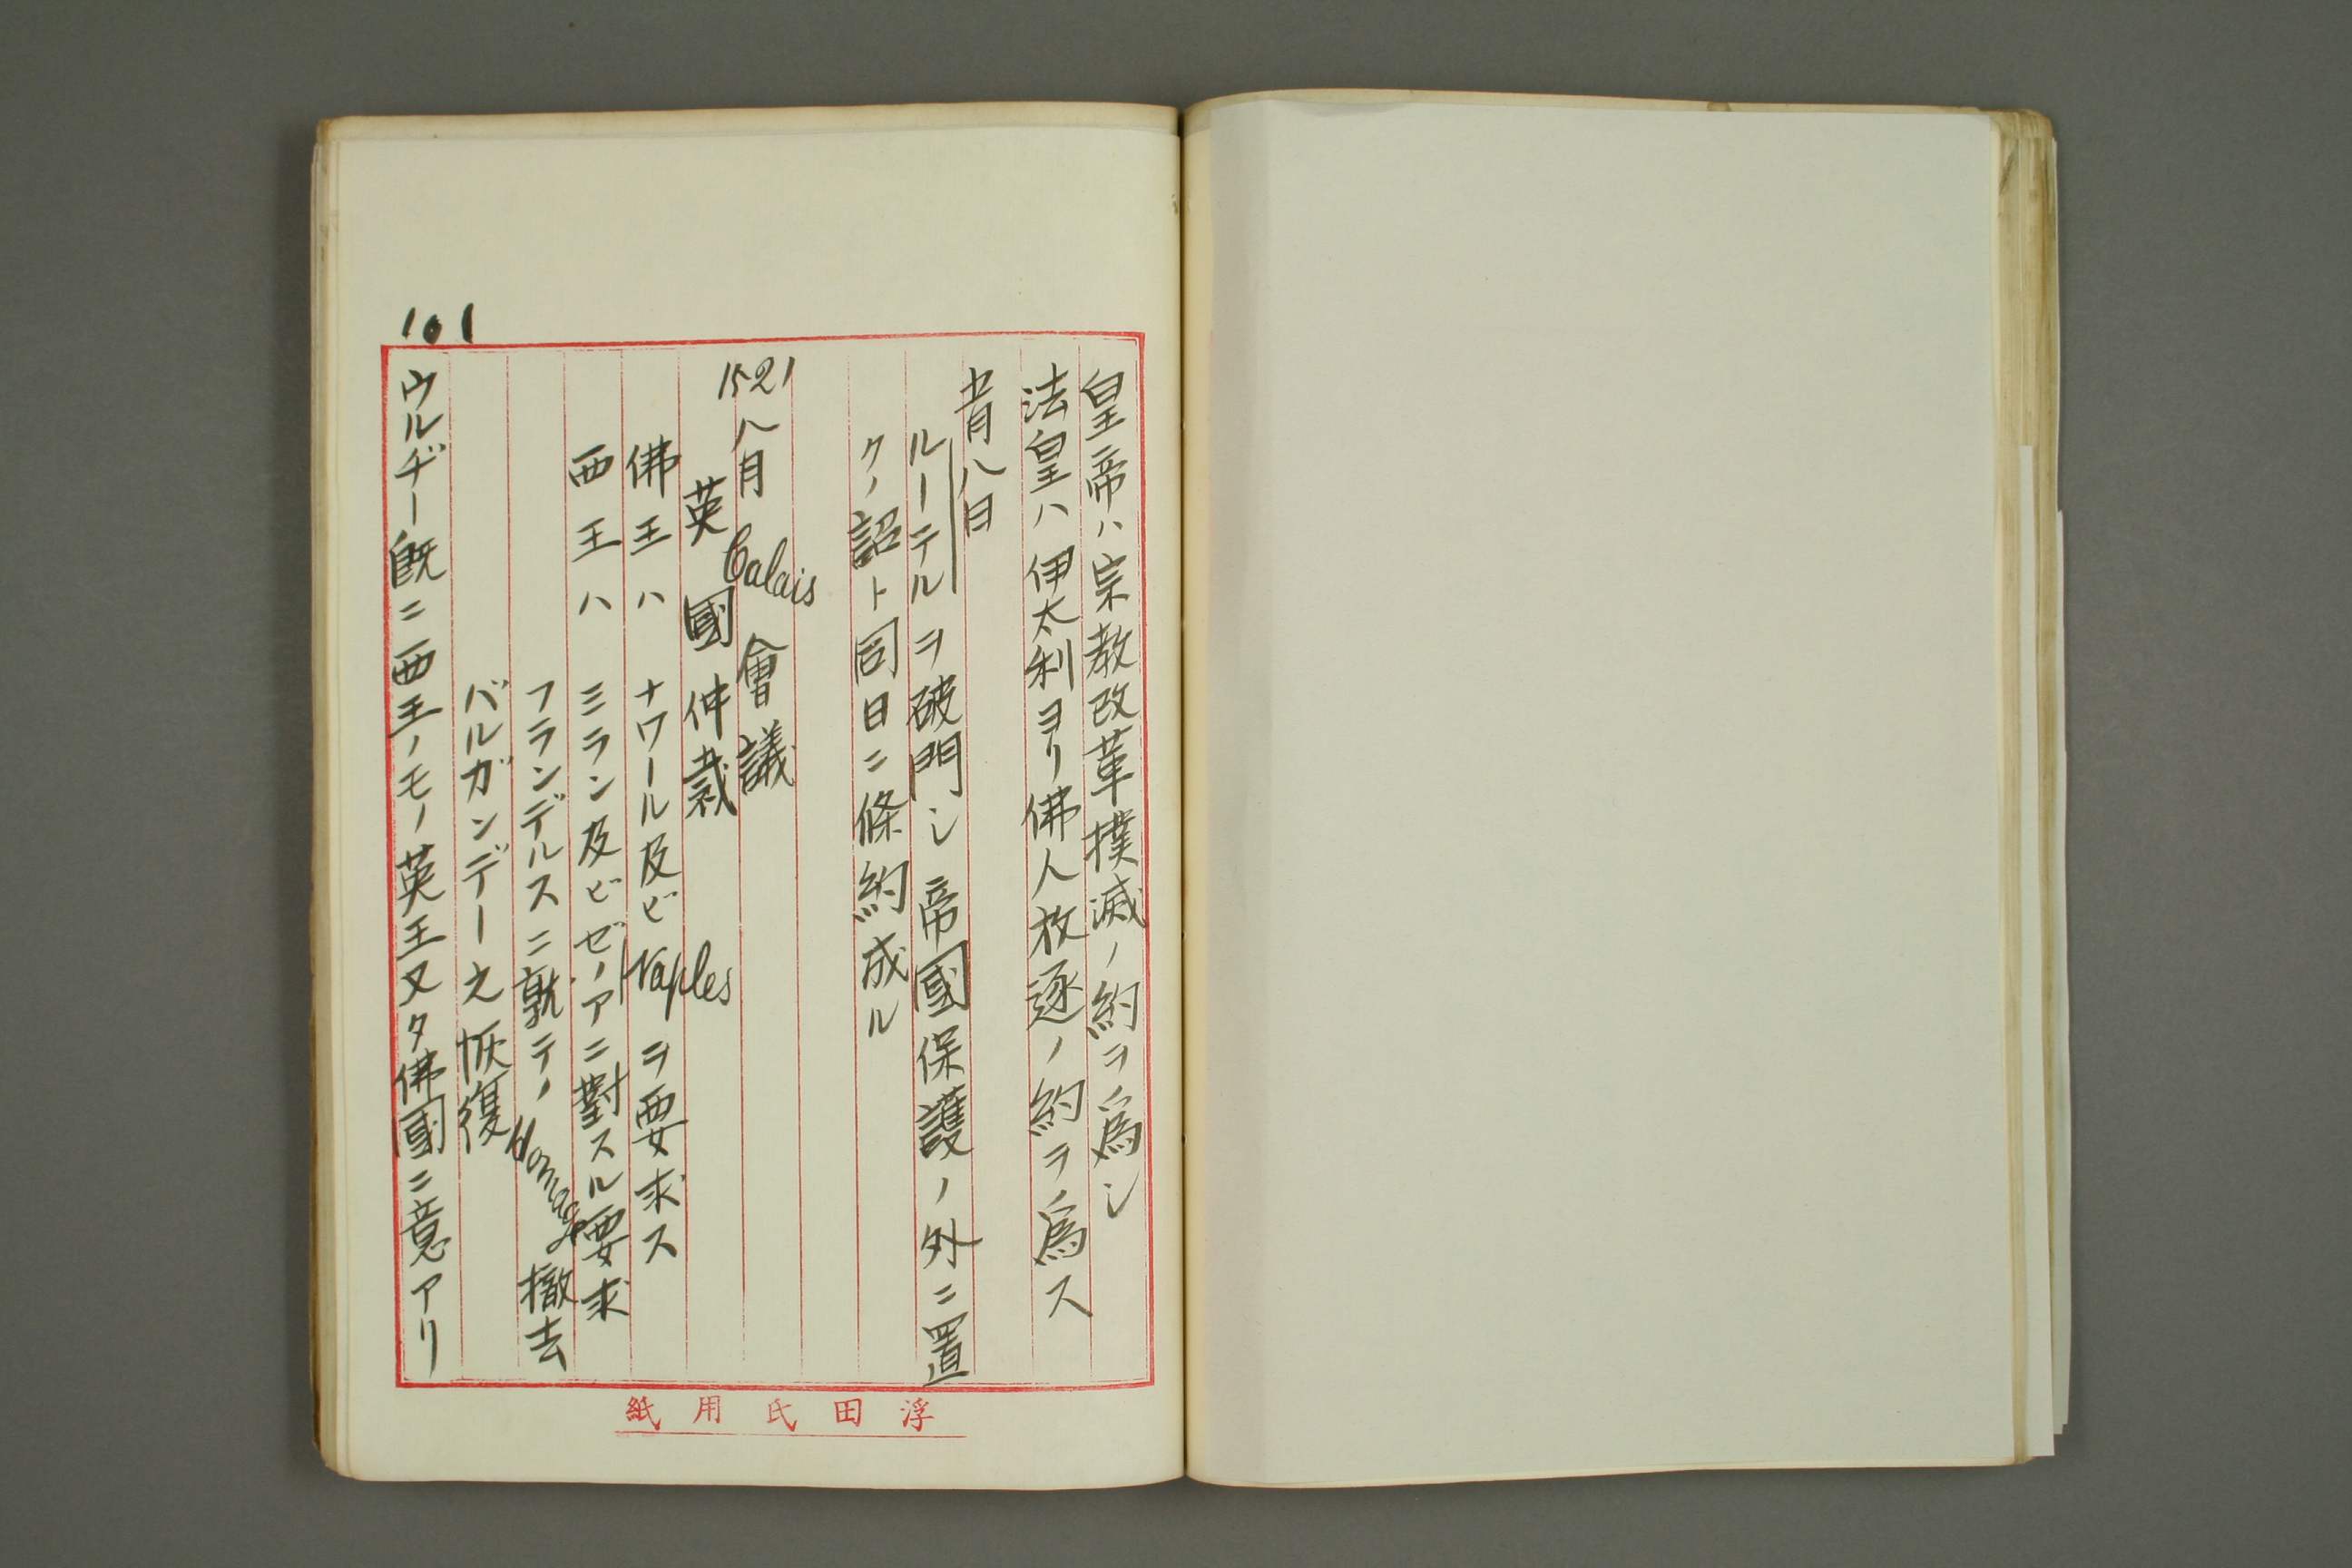 101
皇帝ハ宗教改革撲滅ノ約ヲ為シ
法皇ハ伊太利ヨリ佛人放逐ノ約ヲ為ス
五月八日
ルーテルヲ破門シ帝國保護ノ外ニ置
クノ詔ト同日ニ條約成ル
1521八月 Calais 會議
英國仲裁
佛王ハ ナワール及ビNaplesヲ要求ス
西王ハ ミラン及ビゼノアニ對スル要求
フランデルスニ就テノHomage撤去
バルガンデー之恢復
ウルヂー既ニ西王ノモノ英王又タ佛國ニ意アリ
浮田氏用紙